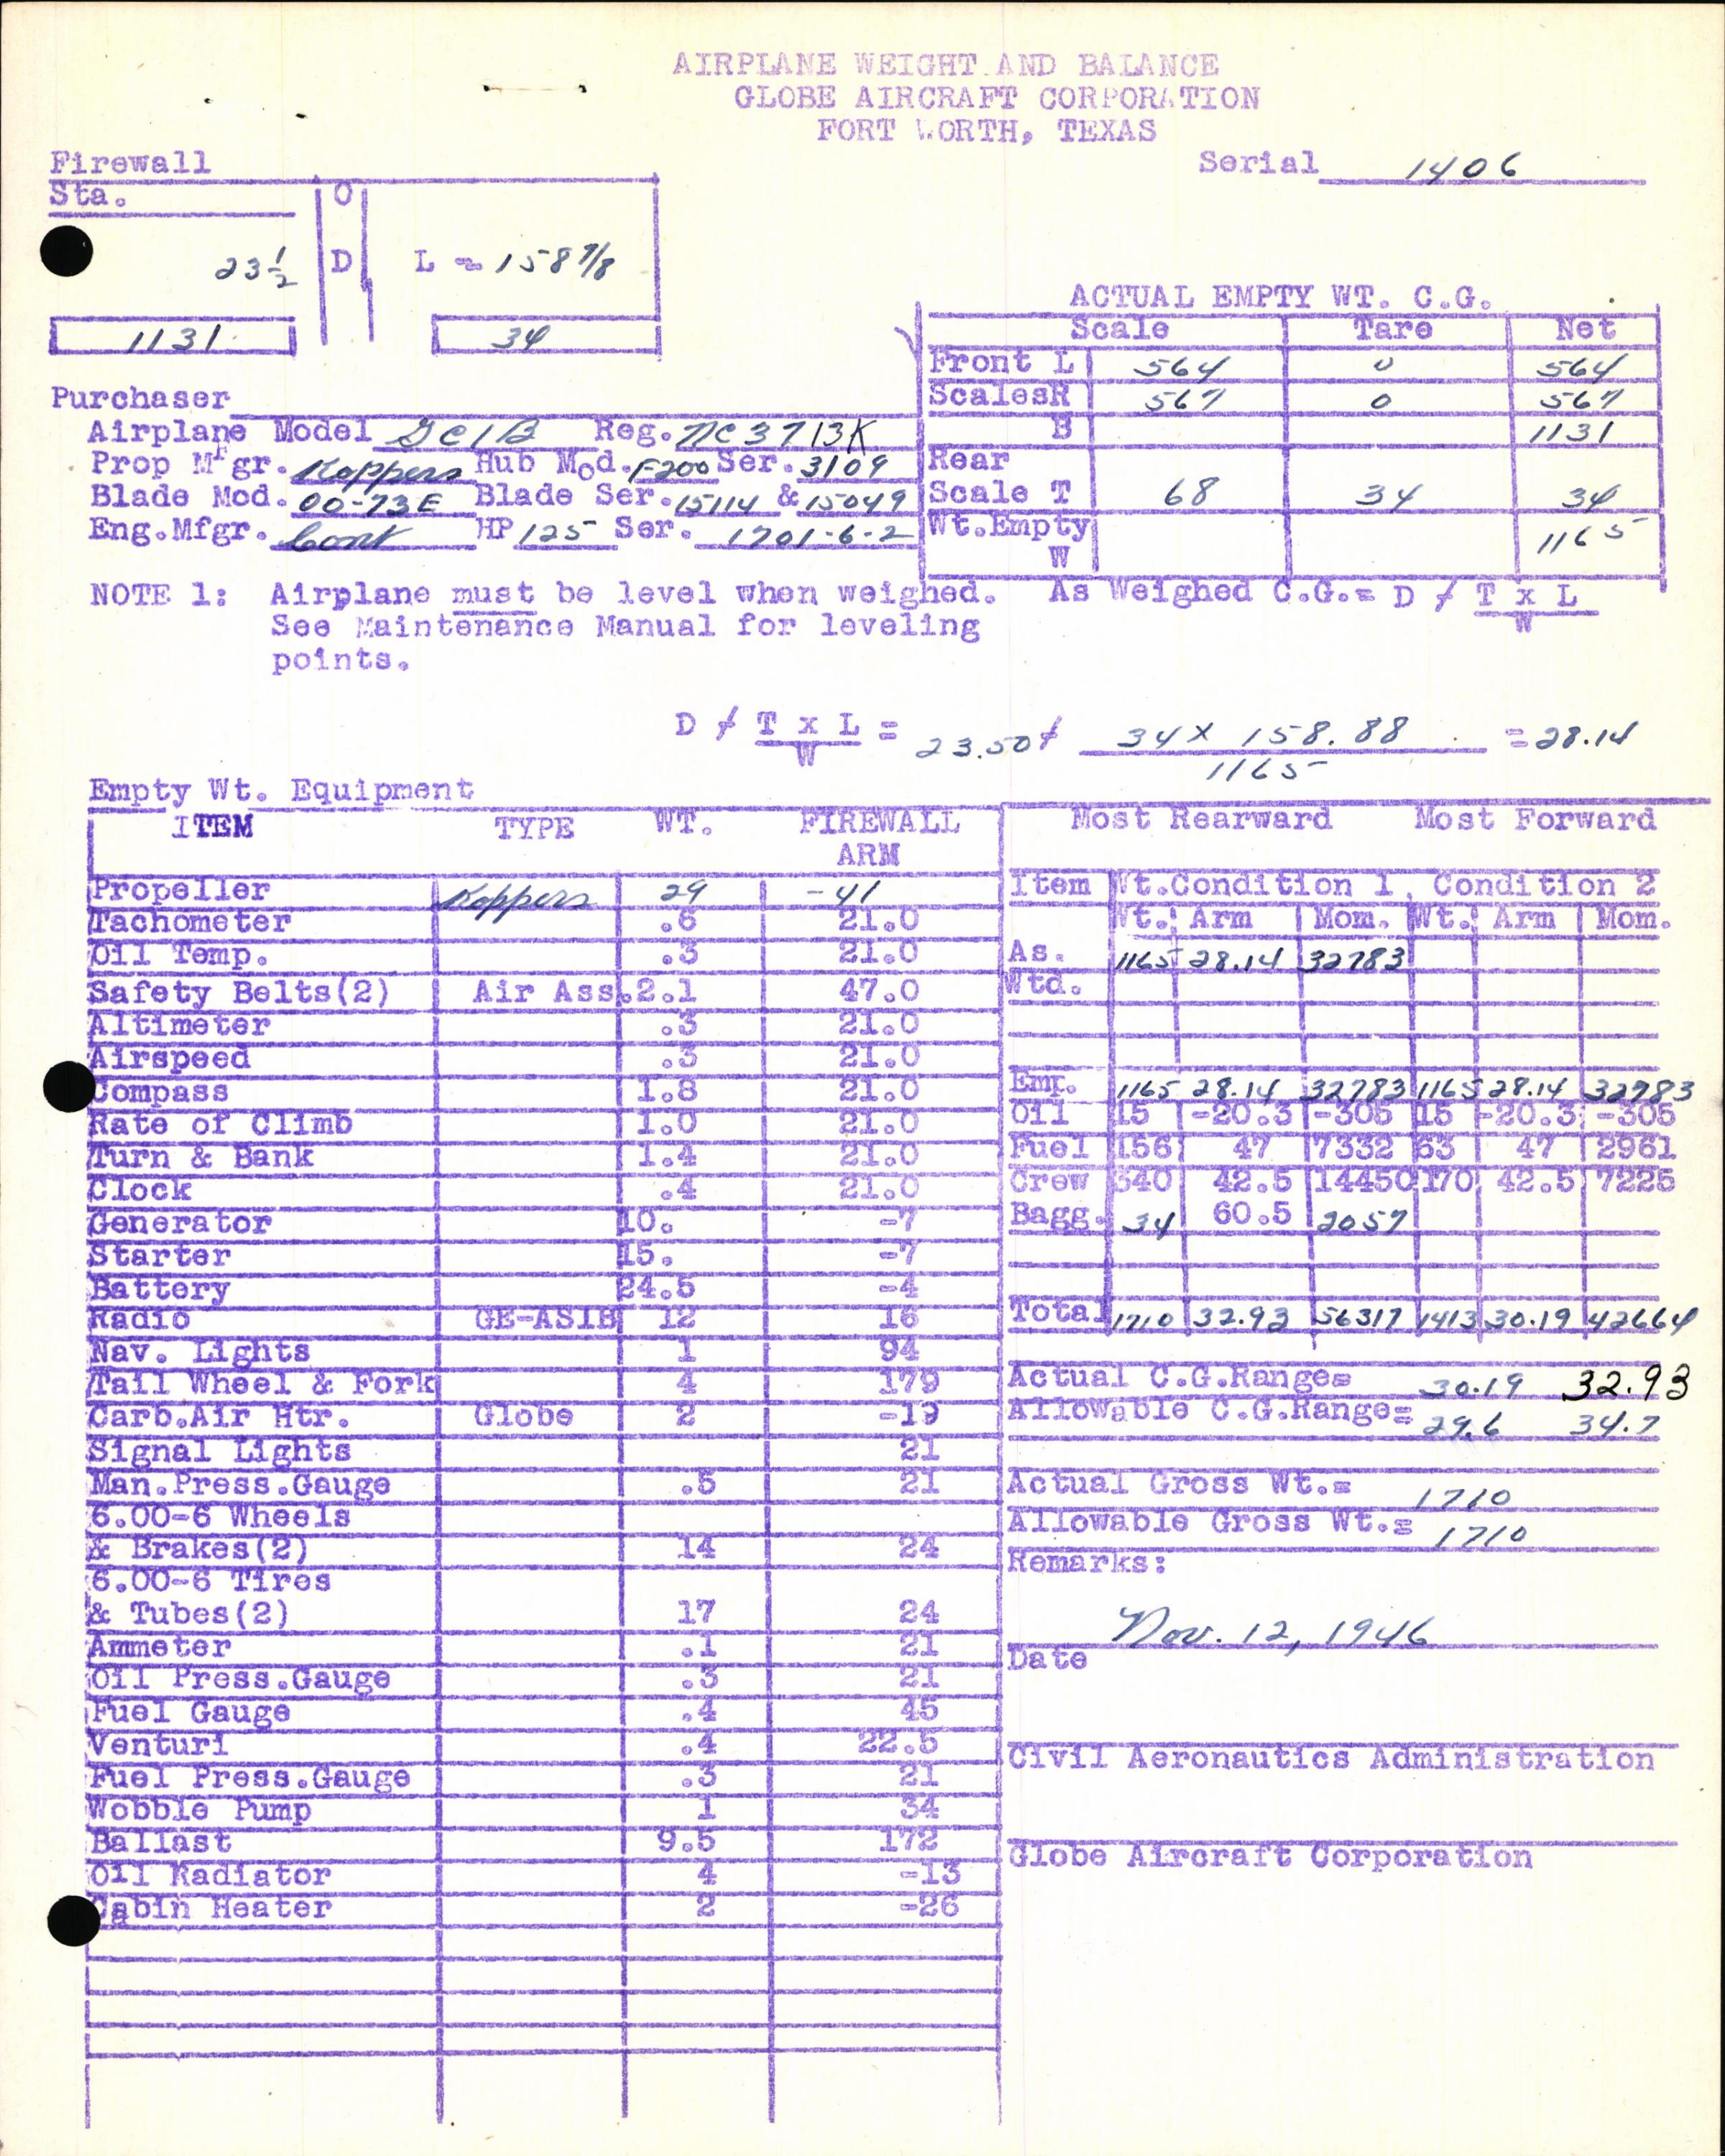 AIRPLANE WEIGHT AND BALANCE
GLOBE AIRCRAFT CORPORATION
FORT WORTH, TEXAS
Serial 1406
Firewall
Sta. O
23½ D L = 158 7/8
1131 34
ACTUAL EMPTY WT. C.G.
Scale Tare Net
Front L 564 0 564
Scales R 567 0 567
B 1131
Rear
Scale T 68 34 34
Wt.Empty
W 1165
Purchaser
Airplane Model GC1B Reg. NC3713K
Prop Mfgr. Koppers Hub Mod. F200 Ser. 3109
Blade Mod. 00-73E Blade Ser. 15114 & 15049
Eng.Mfgr. Cont HP 125 Ser. 1701-6-2
NOTE 1: Airplane must be level when weighed.
See Maintenance Manual for leveling
points.
As Weighed C.G.= D ≠ T x L
W
D ≠ T x L = 23.50 ≠ 34 x 158.88 = 28.14
W 1165
Empty Wt. Equipment
ITEM TYPE WT. FIREWALL
ARM
Propeller Koppers 29 -41
Tachometer .6 21.0
Oil Temp. .3 21.0
Safety Belts(2) Air Ass. 2.1 47.0
Altimeter .3 21.0
Airspeed .3 21.0
Compass 1.8 21.0
Rate of Climb 1.0 21.0
Turn & Bank 1.4 21.0
Clock .4 21.0
Generator 10. -7
Starter 15. -7
Battery 24.5 -4
Radio GE-AS1B 12 16
Nav. Lights 1 94
Tail Wheel & Fork 4 179
Carb.Air Htr. Globe 2 -19
Signal Lights 21
Man.Press.Gauge .5 21
6.00-6 Wheels
& Brakes(2) 14 24
6.00-6 Tires
& Tubes(2) 17 24
Ammeter .1 21
Oil Press.Gauge .3 21
Fuel Gauge .4 45
Venturi .4 22.5
Fuel Press.Gauge .3 21
Wobble Pump 1 34
Ballast 9.5 172
Oil Radiator 4 -13
Cabin Heater 2 -26
Most Rearward Most Forward
Item Wt.Condition 1 Condition 2
Wt. Arm Mom. Wt. Arm Mom.
As. 1165 28.14 32783
Wtd.
Emp. 1165 28.14 32783 1165 28.14 32783
Oil 15 -20.3 -305 15 -20.3 -305
Fuel 156 47 7332 63 47 2961
Crew 340 42.5 14450 170 42.5 7225
Bagg. 34 60.5 2057
Total 1710 32.93 56317 1413 30.19 42664
Actual C.G.Range= 30.19 32.93
Allowable C.G.Range= 29.6 34.7
Actual Gross Wt.= 1710
Allowable Gross Wt.= 1710
Remarks:
Nov. 12, 1946
Date
Civil Aeronautics Administration
Globe Aircraft Corporation